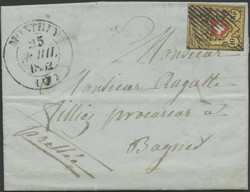 MONTHEY
25
AVRIL
1852
Monsieur
Monsieur Auguste
Fillié procureur à
Bagnes
pressée